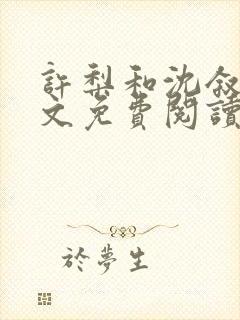 許梨和沈敘
文免費閱讀
於夢生